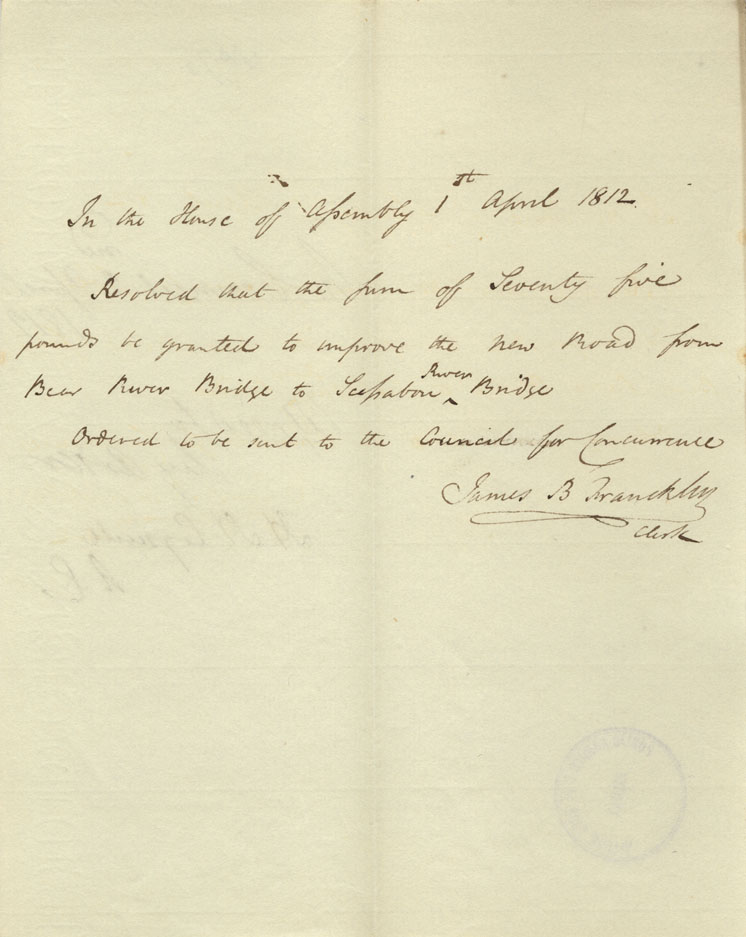 In the House of Assembly 1st April 1812.
Resolved that the sum of Seventy five
pounds be granted to improve the new Road from
Bear River Bridge to Scissabou River Bridge
Ordered to be sent to the Council for Concurrence
James B Franckling
Clerk